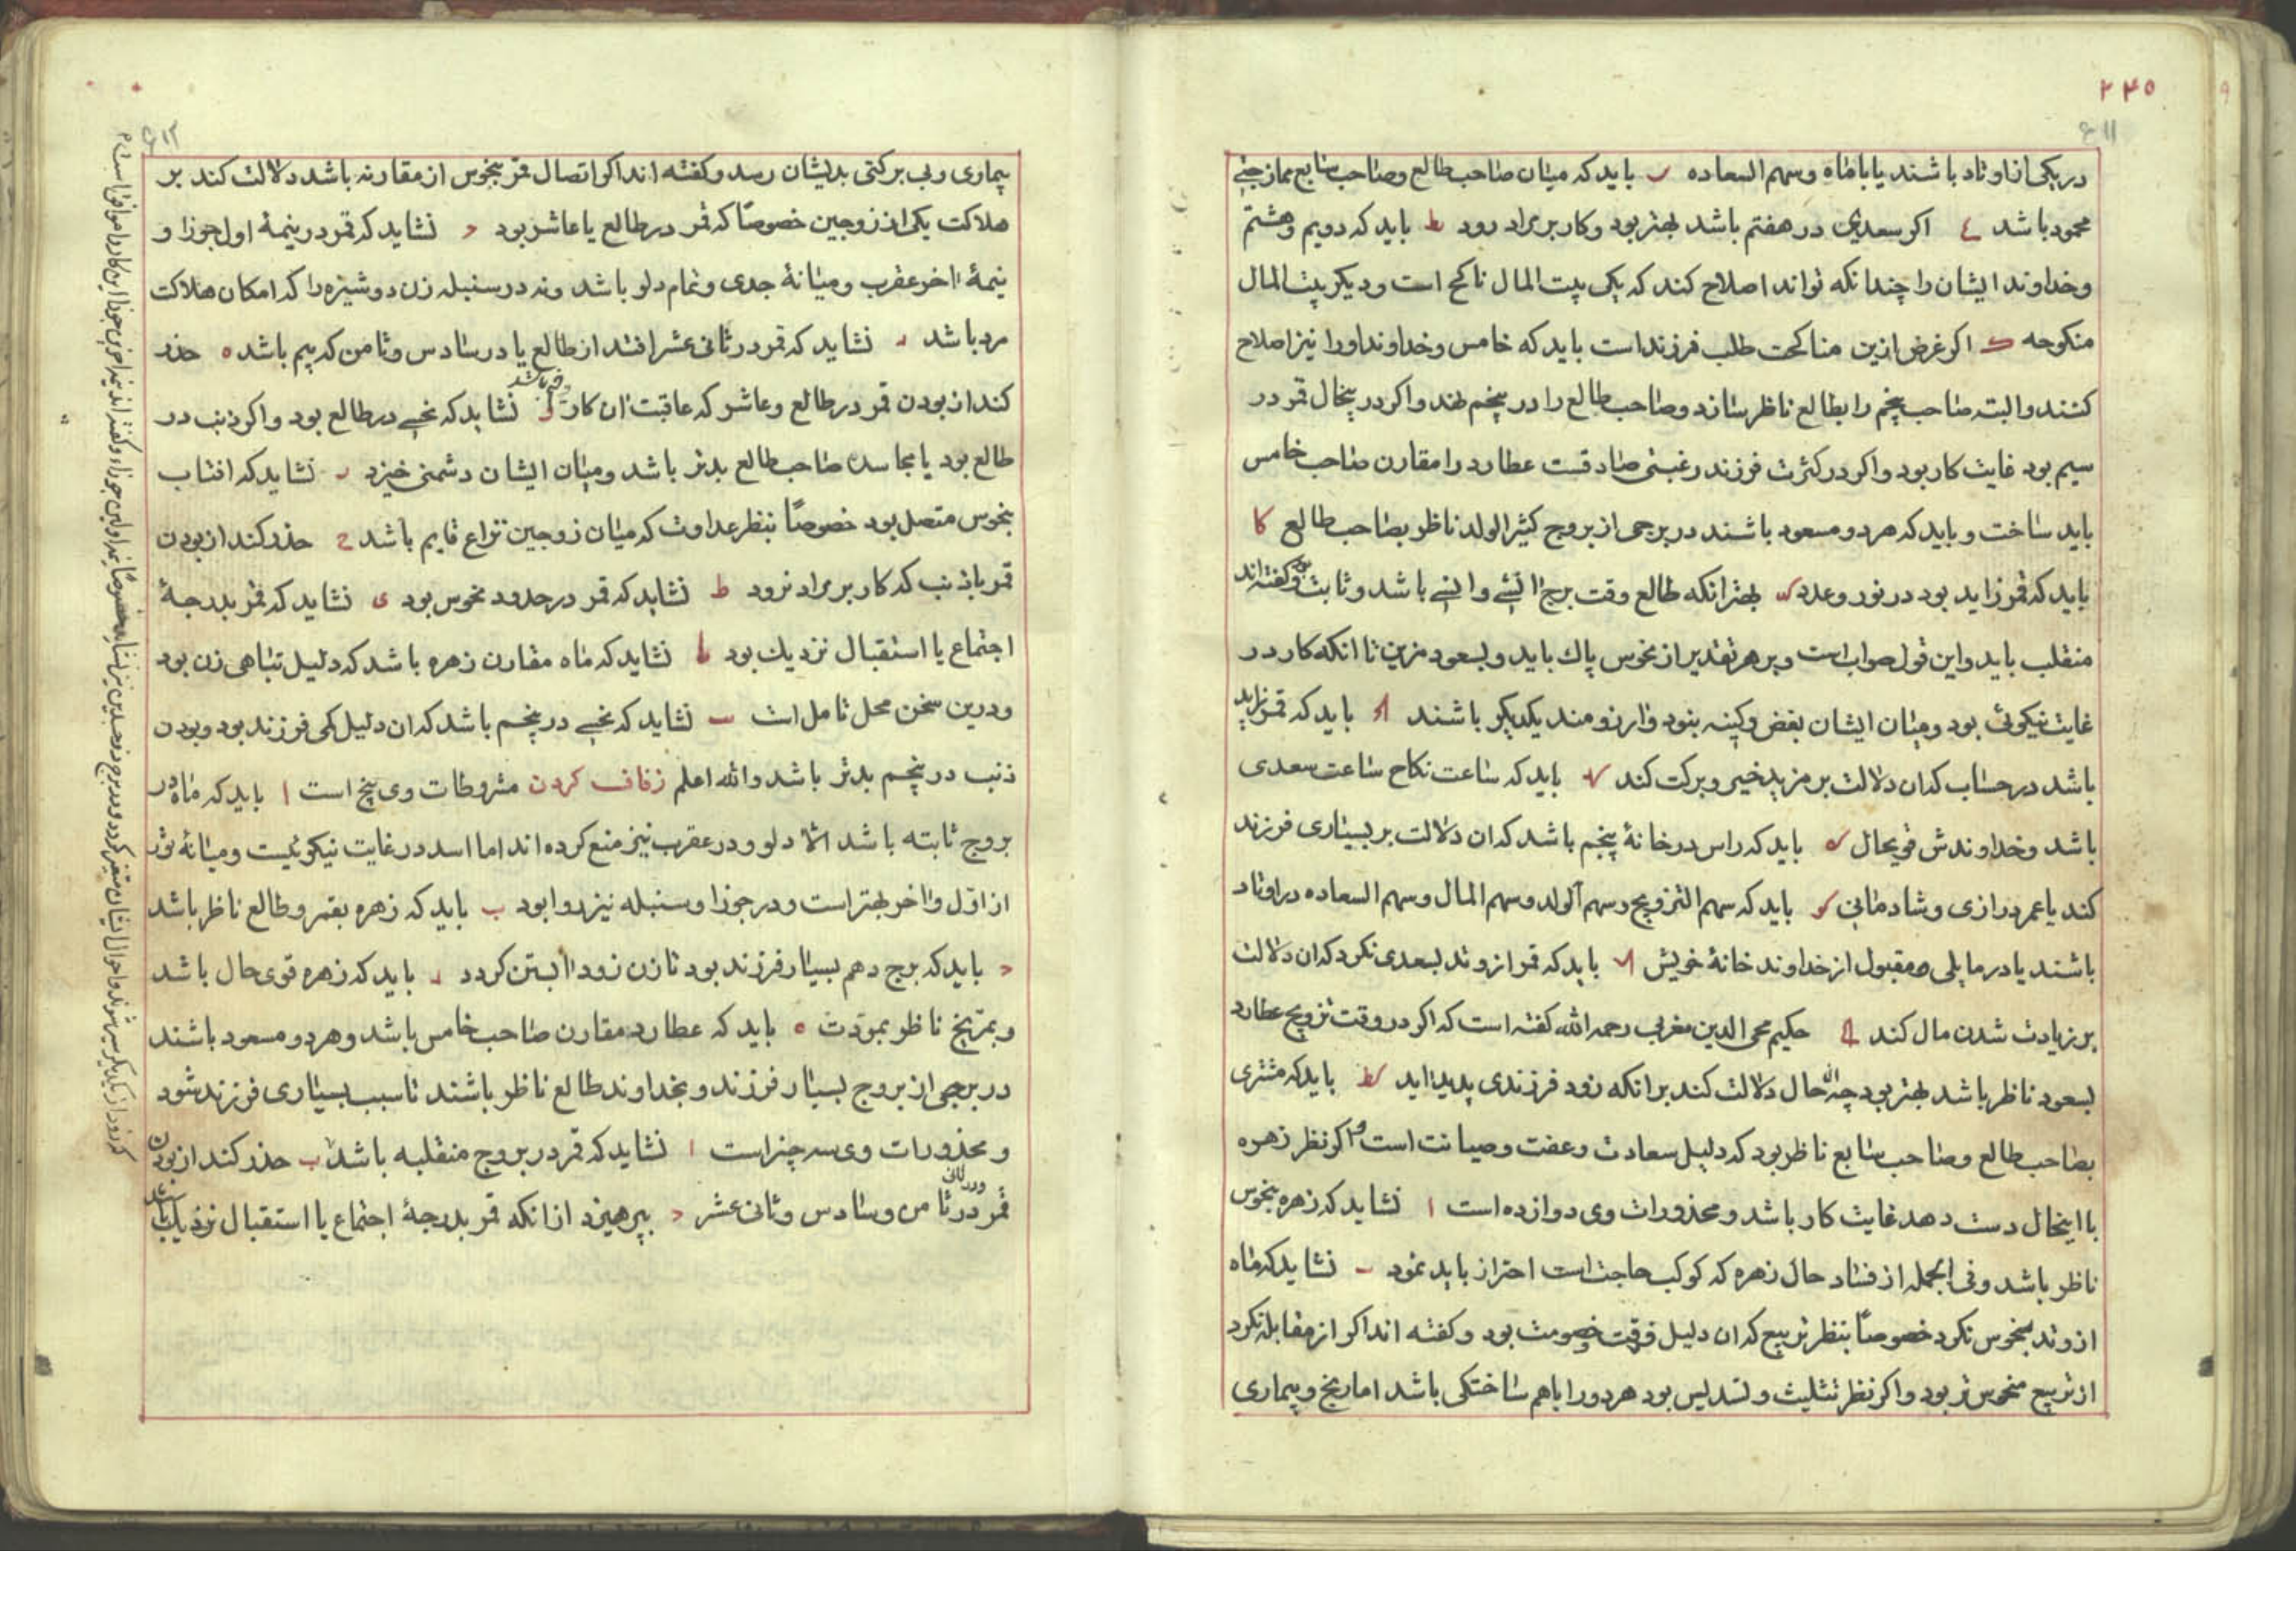 ۲۴۵
۶۱۱
در یکی از اوتاد باشند یا با ماه و سهم السعاده باید که میان صاحب طالع و صاحب سابع ممازجتی
محمود باشد اکر سعدی در هفتم باشد بهتر بود و کار بر مراد رود ط باید که دویم و هشتم
و خداوند ایشان را چندانکه تواند اصلاح کند که یکی بیت المال ناکح است و دیکر بیت المال
منکوحه ک اکر غرض ازین مناکحت طلب فرزند است باید که خامس و خداوند او را نیز اصلاح
کنند و البته صاحب پنجم را بطالع ناظر سازد و صاحب طالع را در پنجم نهند و اکر در پنحال قمر در
سیم بود غایت کار بود و اکر در کثرت فرزند رغبتی صادقست عطارد را مقارن صاحب خامس
باید ساخت و باید که هر دو مسعود باشند در برجی از بروج کثیر الولد ناظر بصاحب طالع کا
باید که قمر زاید بود در نور و عدد بهتر انکه طالع وقت برج انثی و انسی باشد و ثابت بود و کفته اند
منقلب باید و این قول صواب است و بر هر تقدیر از نحوس پاک باید و بسعود مزین تا انکه کار در
غایت نیکوئی بود و میان ایشان بغض و کینه بنود و ارزومند یکدیکر باشند باید که قمر زاید
باشد در حساب که ان دلالت بر مزید خیر و برکت کند باید که ساعت نکاح ساعت سعدی
باشد و خداوندش قویحال که باید که راس در خانهٔ پنجم باشد که ان دلالت بر بسیاری فرزند
کند یا عمر درازی و شادمانی کو باید که سهم التزویج و سهم الولد و سهم المال و سهم السعاده در اوتاد
باشند یا در مایلی مقبول از خداوند خانهٔ خویش باید که قمر از وتد بسعدی نکرد که ان دلالت
بر زیادت شدن مال کند حکیم محی الدین مغربی رحمه الله کفته است که اکر در وقت تزویج عطارد
بسعود ناظر باشد بهتر بود چه حال دلالت کند بر انکه زود فرزندی پدید اید کط باید که مشتری
بصاحب طالع و صاحب سابع ناظر بود که دلیل سعادت و عفت و صیانت است و اکر نظر زهره
با اینحال دست دهد غایت کار باشد و محذورات وی دوازده است ا نشاید که زهره بنحوس
ناظر باشد و فی الجمله از فساد حال زهره که کوکب حاجت است احتراز باید نمود ب نشاید که ماه
از وتد بنحوس نکرد خصوصاً بنظر تربیع که ان دلیل فرقت و خصومت بود و کفته اند اکر از مقابله نکرد
از تربیع منحوس تر بود و اکر نظر تثلیث و تسدیس بود هر دو را باهم ساختکی باشد اما رنج و بیماری
۶۱۲
بیماری و بی برکتی بدیشان رسد و کفته اند اکر اتصال قمر بنحوس از مقارنه باشد دلالت کند بر
هلاکت یکی از زوجین خصوصاً که قمر در طالع یا عاشر بود د نشاید که قمر در نیمهٔ اول جوزا و
نیمهٔ اخر عقرب و میانهٔ جدی و تمام دلو باشد ونه در سنبله زن دوشیزه را که امکان هلاکت
مرد باشد نشاید که قمر در ثانی عشر افتد از طالع یا در سادس و ثامن که بیم باشد ه حذر
کند از بودن قمر در طالع و عاشر که عاقبت ان کار و نشاید که نحسی در طالع بود و اکر ذنب در
طالع بود یا مجاسده صاحب طالع بدتر باشد و میان ایشان دشمنی خیزد ز نشاید که افتاب
بنحوس متصل بود خصوصاً بنظر عداوت که میان زوجین نزاع قایم باشد ح حذر کند از بودن
قمر با ذنب که کار بر مراد نرود ط نشاید که قمر در حدود نحوس بود ی نشاید که قمر بدرجهٔ
اجتماع یا استقبال نزدیک بود یا نشاید که ماه مقارن زهره باشد که دلیل تباهی زن بود
و درین سخن محل تامل است یب نشاید که نحسی در پنجم باشد که ان دلیل کمی فرزند بود و بودن
ذنب در پنجم بدتر باشد والله اعلم زفاف کردن مشروطات وی پنج است ا باید که ماه در
بروج ثابته باشد الا دلو و در عقرب نیز منع کرده اند اما اسد در غایت نیکوئیست و میانهٔ ثور
از اول و اخر بهتر است و در جوزا و سنبله نیز روا بود ب باید که زهره بقمر و طالع ناظر باشد
ج باید که برج دهم بسیار فرزند بود تا زن زود ابستن کردد د باید که زهره قوی حال باشد
و بمریخ ناظر بمودت ه باید که عطارد مقارن صاحب خامس باشد و هر دو مسعود باشند
در برجی از بروج بسیار فرزند و بخداوند طالع ناظر باشند تا سبب بسیاری فرزند شود
و محذورات وی سه چیز است ا نشاید که قمر در بروج منقلبه باشد ب حذر کند از بودن
قمر در ثامن و سادس و ثانی عشر ج بپرهیزد از انکه قمر بدرجهٔ اجتماع یا استقبال نزدیک باشد